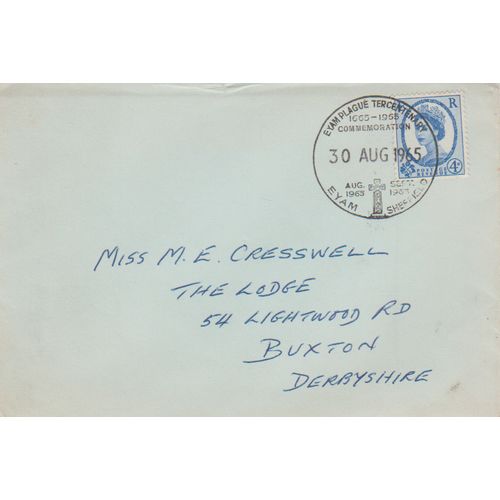 EYAM PLAGUE TERCENTENARY
1665-1965
COMMEMORATION
30 AUG 1965
AUG. SEPT.
1965 1965
EYAM SHEFFIELD
R
4D
POSTAGE
REVENUE
MISS M. E. CRESSWELL
THE LODGE
54 LIGHTWOOD RD
BUXTON
DERBYSHIRE